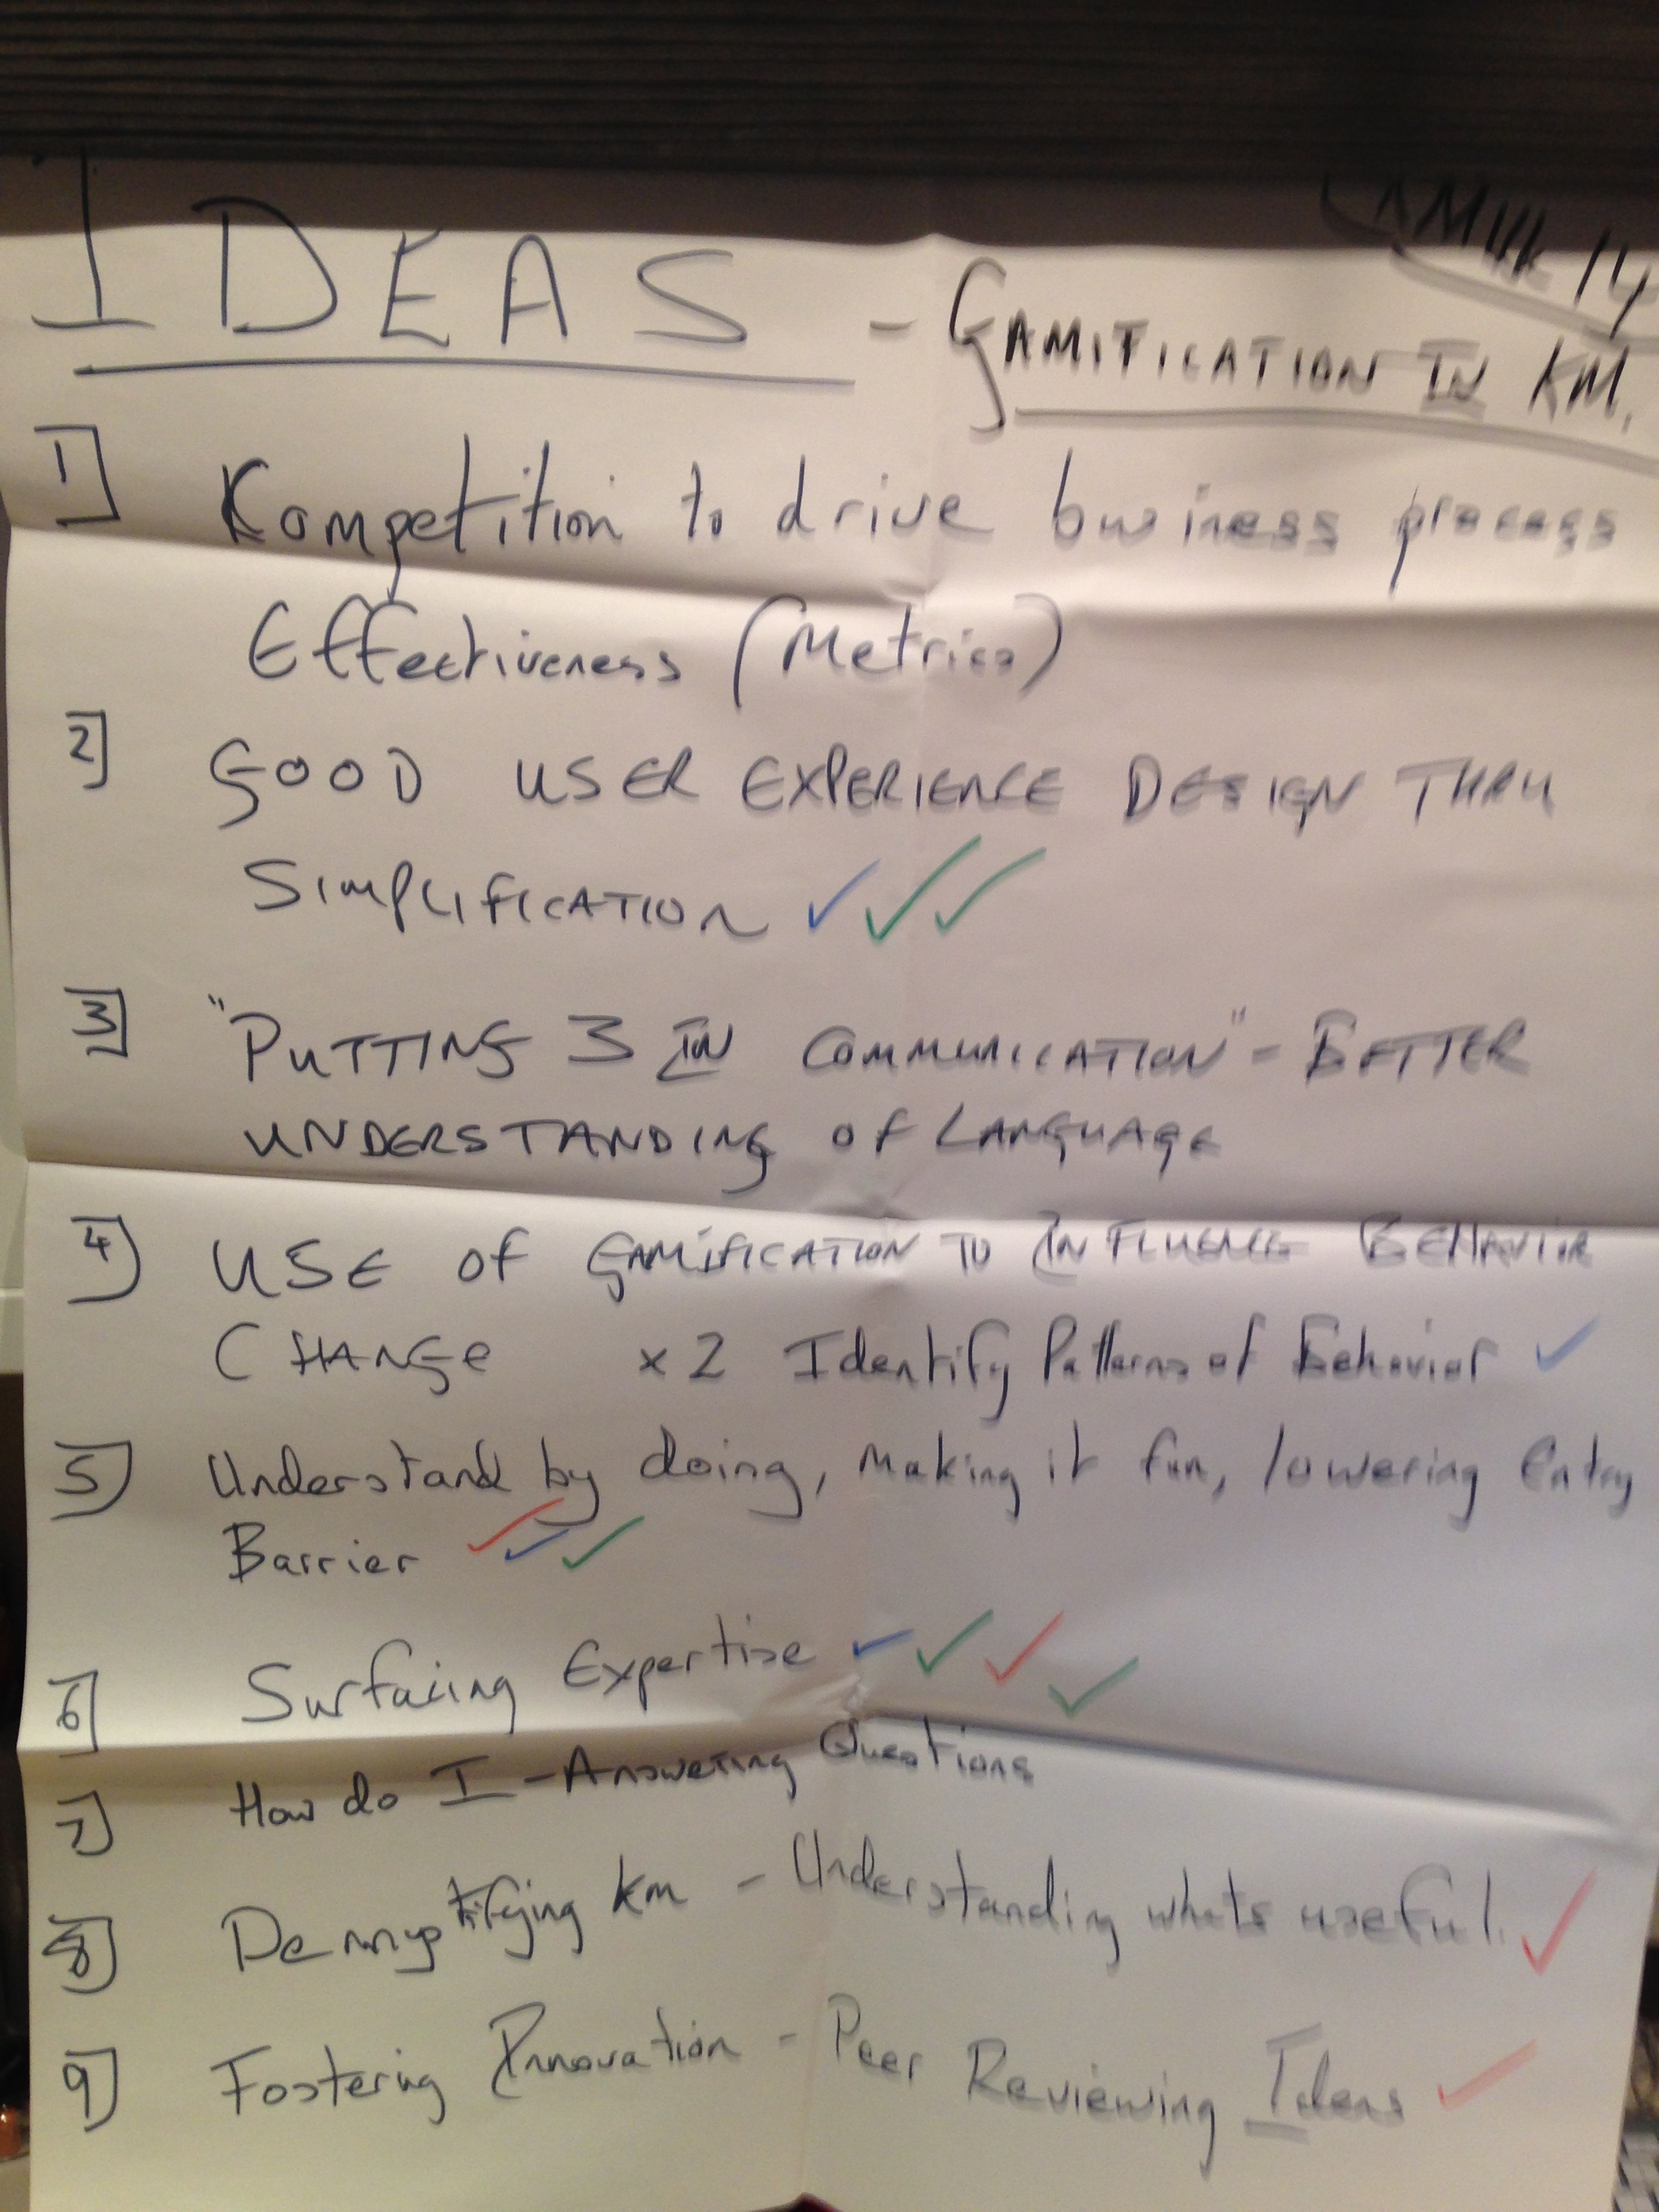 KMUK 14
IDEAS - GAMIFICATION IN KM.
1] Kompetition to drive business process
Effectiveness (Metrics)
2] GOOD USER EXPERIENCE DESIGN THRU
SIMPLIFICATION ✓✓✓
3] "PUTTING 3 IN COMMUNICATION" - BETTER
UNDERSTANDING OF LANGUAGE
4] USE OF GAMIFICATION TO INFLUENCE BEHAVIOR
CHANGE x2 Identify Patterns of Behavior ✓
5] Understand by doing, making it fun, lowering Entry
Barrier ✓✓✓
6] Surfacing Expertise ✓✓✓✓
7] How do I - Answering Questions
8] Demystifying km - Understanding whats useful. ✓
9] Fostering Innovation - Peer Reviewing Ideas ✓